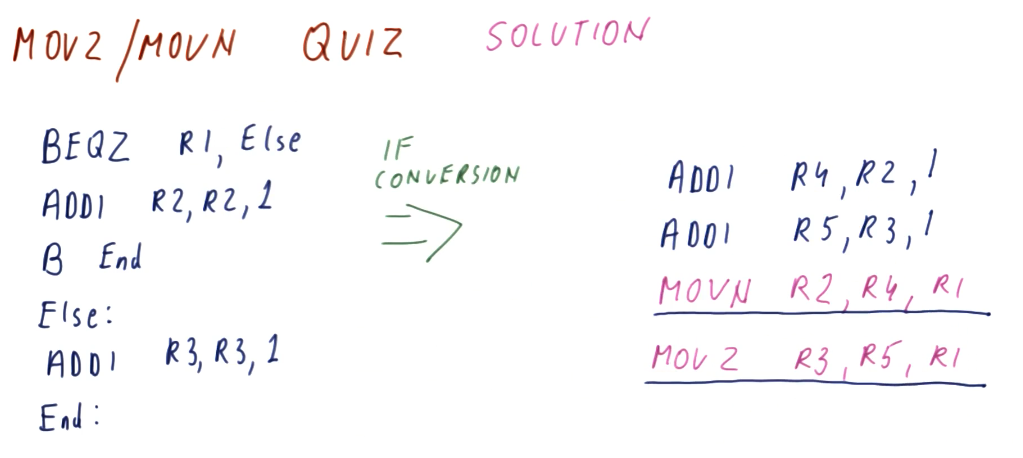 MOVZ/MOVN QUIZ SOLUTION
BEQZ R1, Else
ADDI R2, R2, 1
B End
Else:
ADDI R3, R3, 1
End:
IF
CONVERSION
ADDI R4, R2, 1
ADDI R5, R3, 1
MOVN R2, R4, R1
MOVZ R3, R5, R1